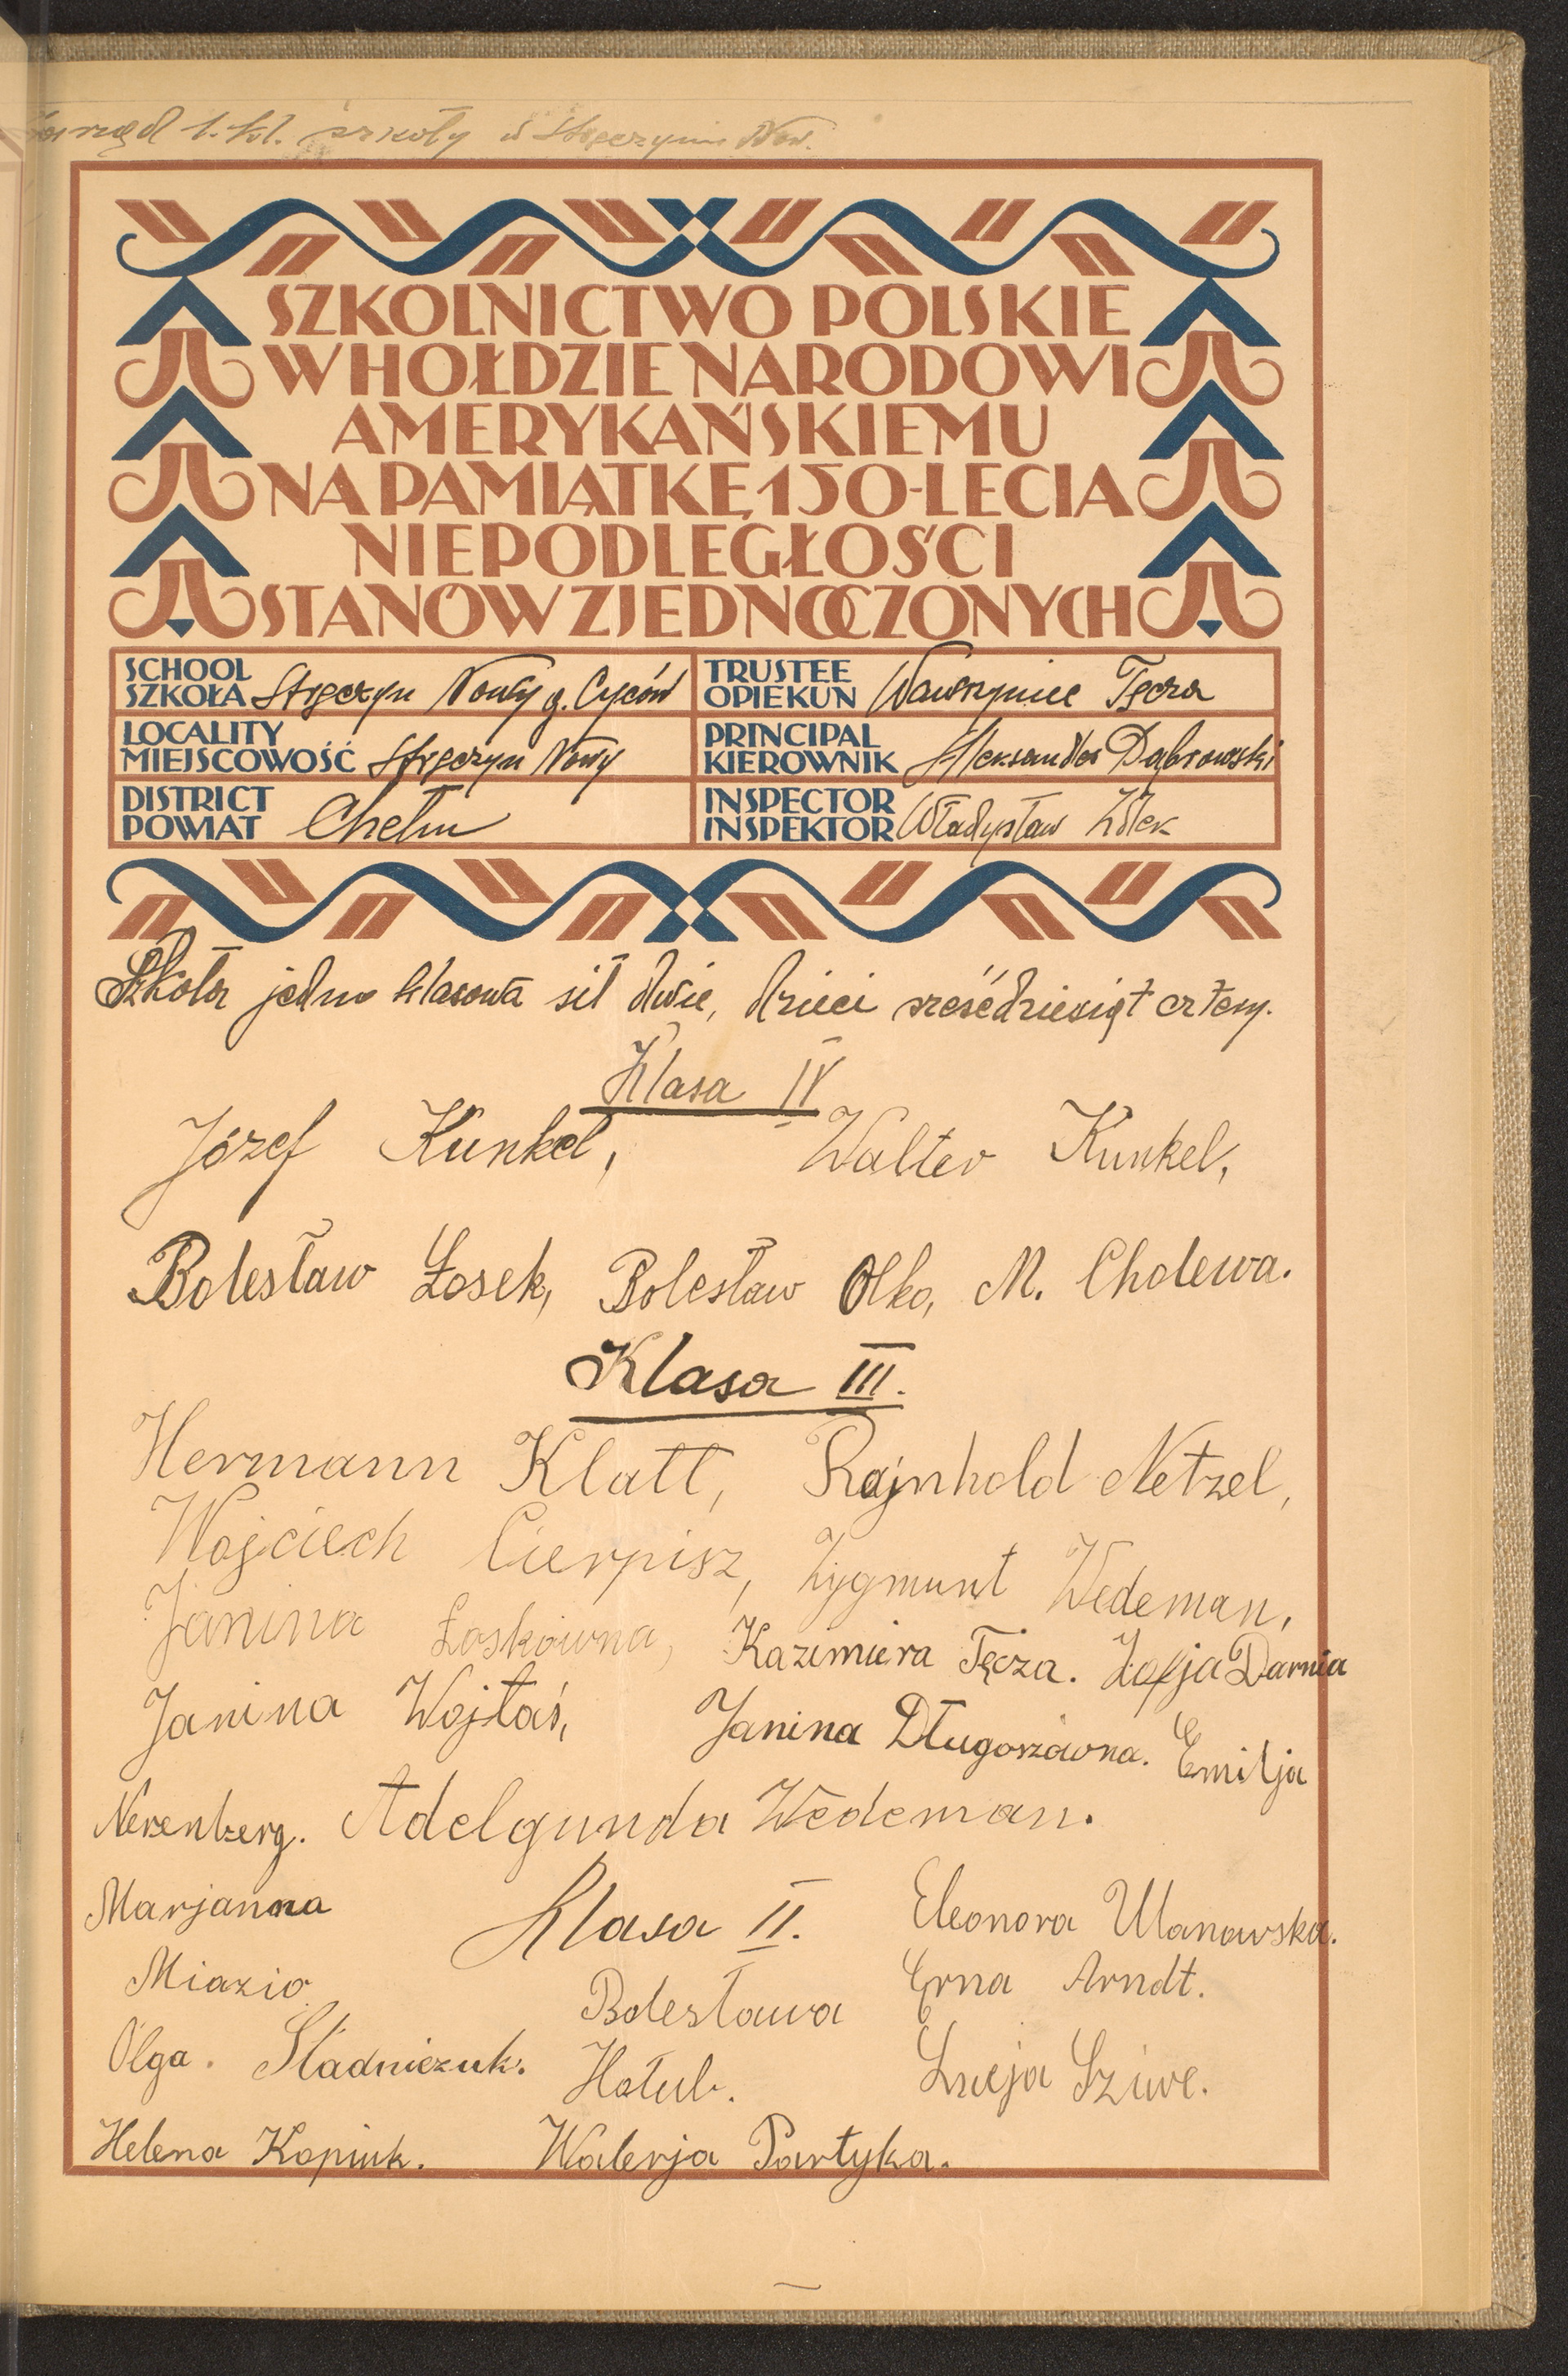 Zarząd 1. kl. szkoły w Stręczynie Now.
SZKOLNICTWO POLSKIE
W HOŁDZIE NARODOWI
AMERYKAŃSKIEMU
NA PAMIĄTKĘ 150-LECIA
NIEPODLEGŁOŚCI
STANÓW ZJEDNOCZONYCH
SCHOOL
SZKOŁA Stręczyn Nowy g. Cyców
TRUSTEE
OPIEKUN Wawrzyniec Tęcza
LOCALITY
MIEJSCOWOŚĆ Stręczyn Nowy
PRINCIPAL
KIEROWNIK Aleksander Dąbrowski
DISTRICT
POWIAT Chełm
INSPECTOR
INSPEKTOR Władysław Żółek
Szkoła jedno klasowa sił dwie, dzieci sześćdziesiąt cztery.
Klasa IV
Józef Kunkel, Walter Kunkel,
Bolesław Łosek, Bolesław Olko, M. Cholewa.
Klasa III.
Hermann Klatt, Rajnhold Netzel,
Wojciech Cierpisz, Zygmunt Wedeman,
Janina Łoskówna, Kazimiera Tęcza. Zofja Darnia
Janina Wojtaś, Janina Długoszówna. Emilja
Nerenberg. Adelgunda Wedeman.
Marjanna Klasa II. Eleonora Ulanowska.
Miazio Bolesława Erna Arndt.
Olga. Sladniczuk. Hołub. Łucja Sziwe.
Helena Kopiuk. Walerja Partyka.